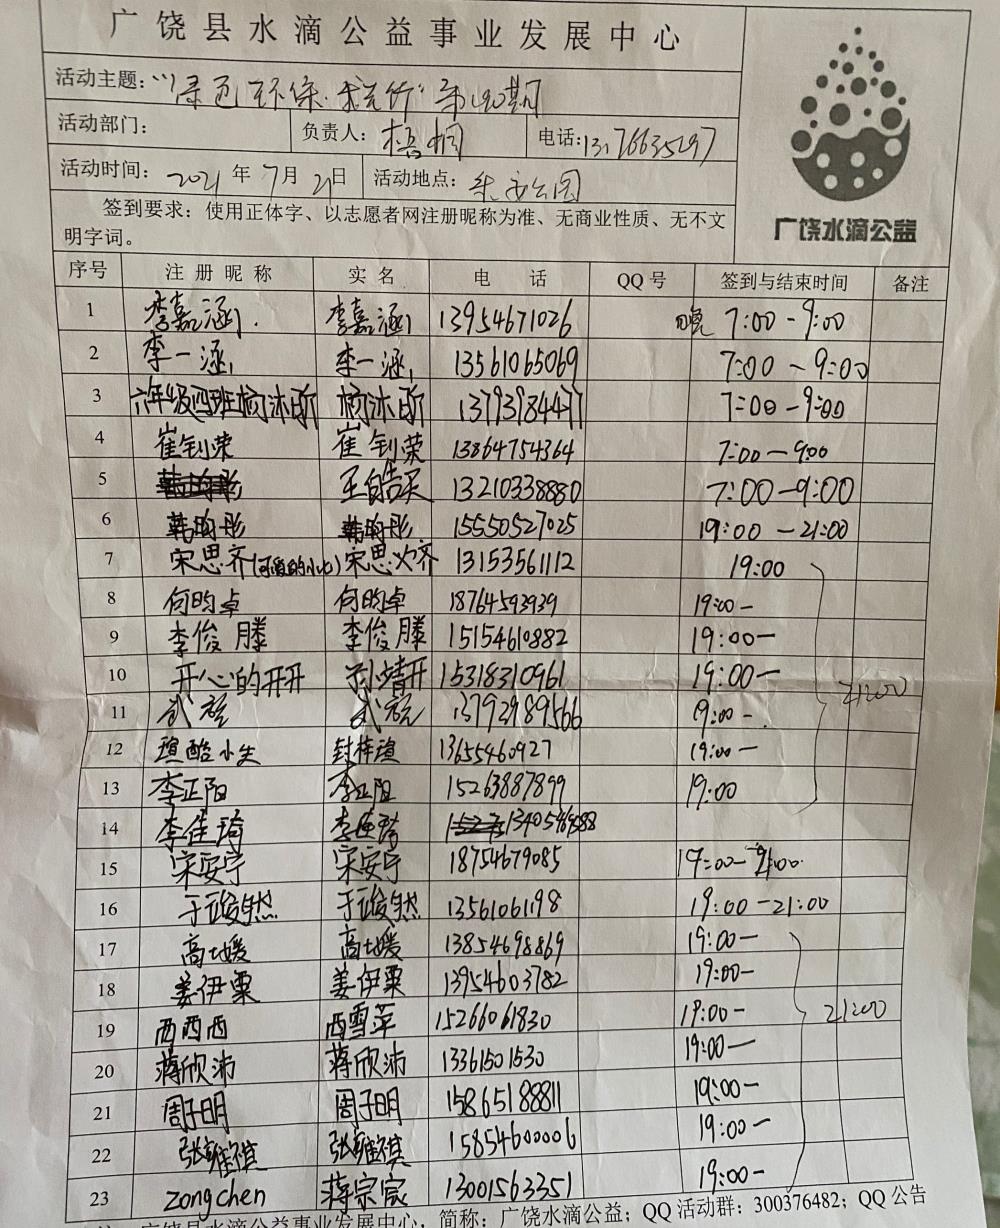 广饶县水滴公益事业发展中心
活动主题：“绿色环保·我先行”第 期
活动部门： 负责人：梧桐 电话：
活动时间：2021年7月21日 活动地点：乐安公园
广饶水滴公益
签到要求：使用正体字、以志愿者网注册昵称为准、无商业性质、无不文
明字词。
序号 注册昵称 实名 电话 QQ号 签到与结束时间 备注
1 李嘉涵 李嘉涵 13954671026 晚 7:00-9:00
2 李一涵 李一涵 13561065069 7:00-9:00
3 六年级四班杨沐昕 杨沐昕 13793984477 7:00-9:00
4 崔钊荣 崔钊荣 13864754364 7:00-9:00
5 王皓 13210338880 7:00-9:00
6 韩昀彤 韩昀彤 15550527025 19:00-21:00
7 宋思齐(可爱的小七) 宋思齐 13153561112 19:00
8 何昀卓 何昀卓 18764593939 19:00-
9 李俊滕 李俊滕 15154610882 19:00-
10 开心的开开 靖开 15318310961 19:00-
21:00
11 武 武 13792989566 19:00-
12 瑄酷小生 封梓瑄 13655460927 19:00-
13 李正阳 李正阳 15263887899 19:00
14 李佳琦 李佳琦
15 宋安宁 宋安宁 18754679085 19:00-21:00
16 于竣然 于竣然 13561061198 19:00-21:00
17 高士媛 高士媛 13854698869 19:00-
18 姜伊粟 姜伊粟 13954603782 19:00-
19 西西西 西雪萍 15266061830 19:00-
21:00
20 蒋欣沛 蒋欣沛 13361501530 19:00-
21 周子明 周子明 15865188811 19:00-
22 张雅祺 张雅祺 15854600006 19:00-
23 zongchen 蒋宗宸 13001563351 19:00-
广饶县水滴公益事业发展中心，简称：广饶水滴公益；QQ活动群：300376482；QQ公告